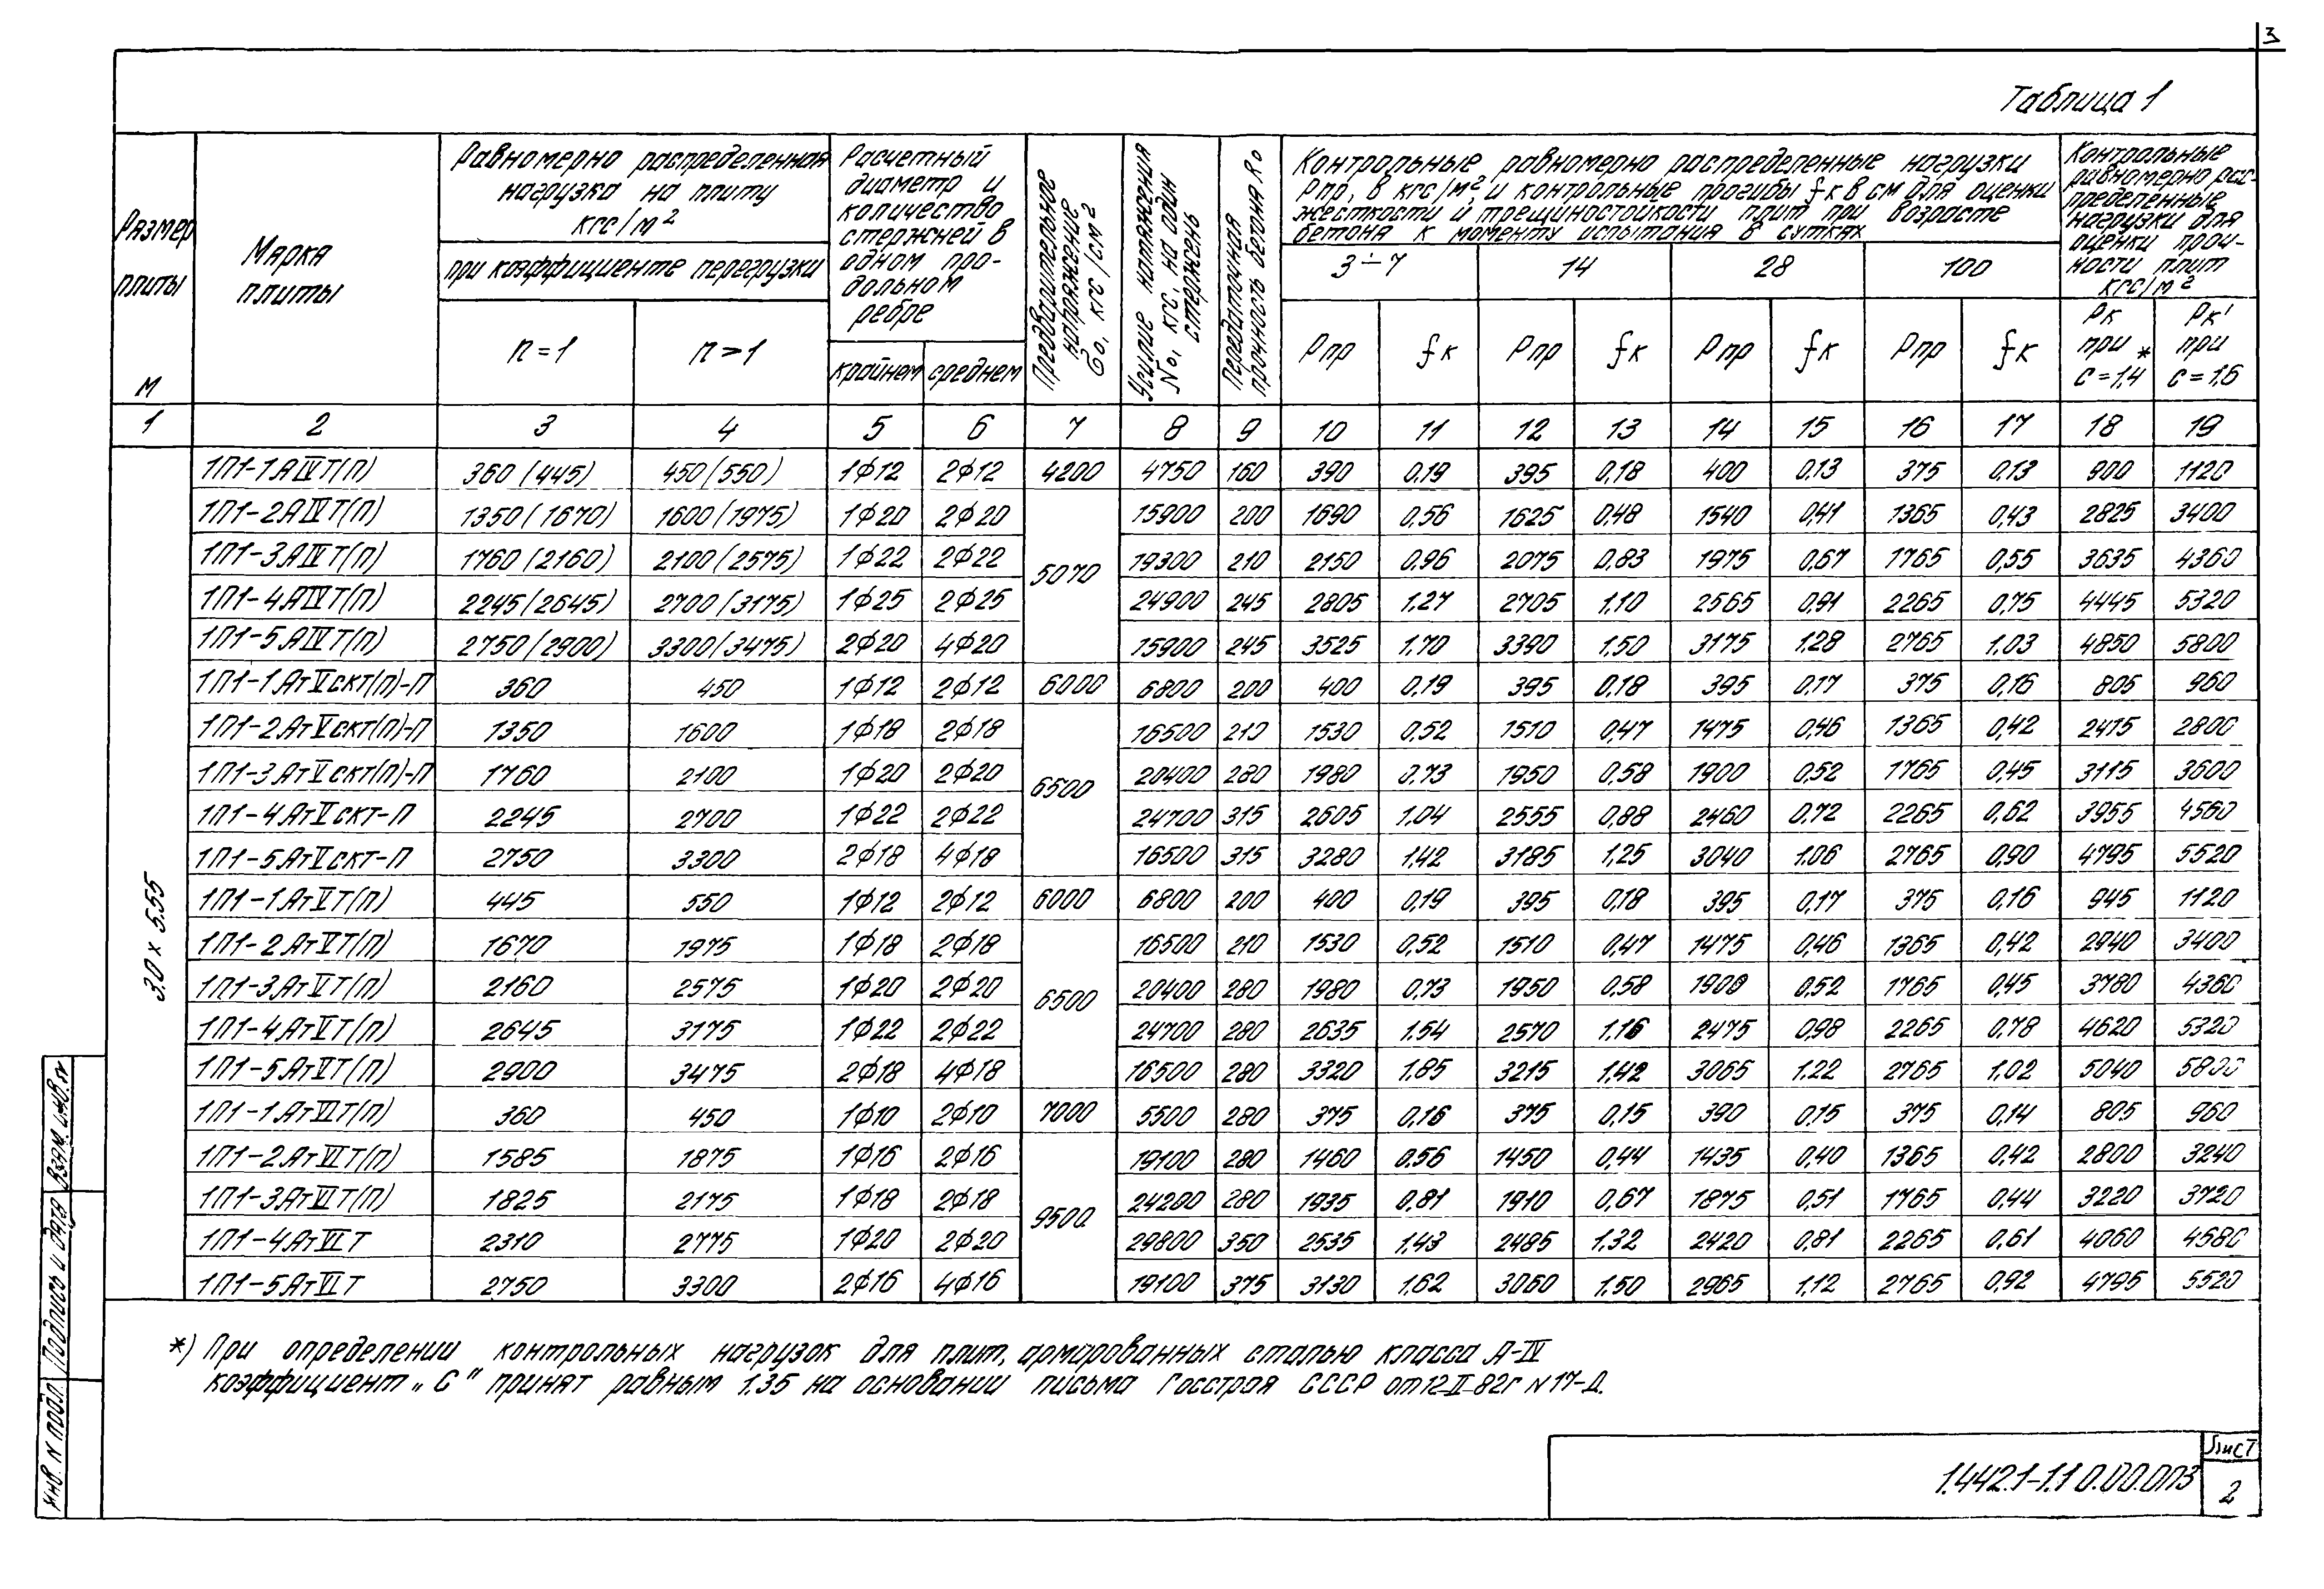 3
Таблица 1
Размер плиты м
Марка плиты
Равномерно распределенная нагрузка на плиту кгс/м²
при коэффициенте перегрузки
n=1
n>1
Расчетный диаметр и количество стержней в одном продольном ребре
крайнем
среднем
Предварительное напряжение бо, кгс/см²
Усилие натяжения No, кгс, на один стержень
Передаточная прочность бетона Ro
Контрольные равномерно распределенные нагрузки
Рпр, в кгс/м², и контрольные прогибы fк в см для оценки
жесткости и трещиностойкости плит при возрасте
бетона к моменту испытания в сутках
3÷7 14 28 100
Рпр fк Рпр fк Рпр fк Рпр fк
Контрольные равномерно распределенные нагрузки для оценки прочности плит кгс/м²
Рк при* С=1,4
Рк' при С=1,6
1 2 3 4 5 6 7 8 9 10 11 12 13 14 15 16 17 18 19
3.0 × 5.55
1П1-1АIVТ(П) 360(445) 450(550) 1ф12 2ф12 4200 4750 160 390 0,19 395 0,18 400 0,13 375 0,13 900 1120
1П1-2АIVТ(П) 1350(1670) 1600(1975) 1ф20 2ф20 5070 15900 200 1690 0,56 1625 0,48 1540 0,41 1365 0,43 2825 3400
1П1-3АIVТ(П) 1760(2160) 2100(2575) 1ф22 2ф22 19300 210 2150 0,96 2075 0,83 1975 0,67 1765 0,55 3635 4360
1П1-4АIVТ(П) 2245(2645) 2700(3175) 1ф25 2ф25 24900 245 2805 1,27 2705 1,10 2565 0,91 2265 0,75 4445 5320
1П1-5АIVТ(П) 2750(2900) 3300(3475) 2ф20 4ф20 15900 245 3525 1,70 3390 1,50 3175 1,28 2765 1,03 4850 5800
1П1-1АтVСКТ(П)-П 360 450 1ф12 2ф12 6000 6800 200 400 0,19 395 0,18 395 0,17 375 0,16 805 960
1П1-2АтVСКТ(П)-П 1350 1600 1ф18 2ф18 6500 16500 210 1530 0,52 1510 0,47 1475 0,46 1365 0,42 2415 2800
1П1-3АтVСКТ(П)-П 1760 2100 1ф20 2ф20 20400 280 1980 0,73 1950 0,58 1900 0,52 1765 0,45 3115 3600
1П1-4АтVСКТ-П 2245 2700 1ф22 2ф22 24700 315 2605 1,04 2555 0,88 2460 0,72 2265 0,62 3955 4560
1П1-5АтVСКТ-П 2750 3300 2ф18 4ф18 16500 315 3280 1,42 3185 1,25 3040 1,06 2765 0,90 4795 5520
1П1-1АтVТ(П) 445 550 1ф12 2ф12 6000 6800 200 400 0,19 395 0,18 395 0,17 375 0,16 945 1120
1П1-2АтVТ(П) 1670 1975 1ф18 2ф18 6500 16500 210 1530 0,52 1510 0,47 1475 0,46 1365 0,42 2940 3400
1П1-3АтVТ(П) 2160 2575 1ф20 2ф20 20400 280 1980 0,73 1950 0,58 1900 0,52 1765 0,45 3780 4360
1П1-4АтVТ(П) 2645 3175 1ф22 2ф22 24700 280 2635 1,54 2570 1,16 2475 0,98 2265 0,78 4620 5320
1П1-5АтVТ(П) 2900 3475 2ф18 4ф18 16500 280 3320 1,85 3215 1,42 3065 1,22 2765 1,02 5040 5800
1П1-1АтVIТ(П) 360 450 1ф10 2ф10 7000 5500 280 375 0,16 375 0,15 390 0,15 375 0,14 805 960
1П1-2АтVIТ(П) 1585 1875 1ф16 2ф16 9500 19100 280 1460 0,56 1450 0,44 1435 0,40 1365 0,42 2800 3240
1П1-3АтVIТ(П) 1825 2175 1ф18 2ф18 24200 280 1935 0,81 1910 0,67 1875 0,51 1765 0,44 3220 3720
1П1-4АтVIТ 2310 2775 1ф20 2ф20 29800 350 2535 1,43 2485 1,32 2420 0,81 2265 0,61 4060 4680
1П1-5АтVIТ 2750 3300 2ф16 4ф16 19100 375 3130 1,62 3060 1,50 2965 1,12 2765 0,92 4795 5520
*) При определении контрольных нагрузок для плит, армированных сталью класса А-IV
коэффициент „С" принят равным 1.35 на основании письма Госстроя СССР от 12-II-82г N 17-Д.
Инв. N подл. Подпись и дата Взам. инв. N
1.442.1-1.1 0.00.0ПЗ
Лист
2